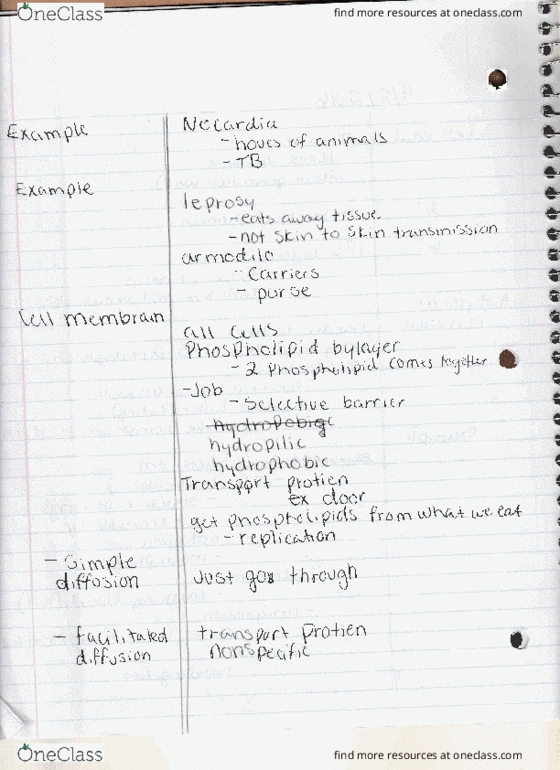 OneClass
find more resources at oneclass.com
Example
Necardia
- hoves of animals
- TB
Example
leprosy
- eats away tissue
- not skin to skin transmission
armodilo
- Carriers
- purse
Cell membrain
all cells
Phospholipid bylayer
- 2 phospholipid comes together
- Job
- Selective barrier
hydropilic
hydrophobic
Transport protien
ex door
get phospholipids from what we eat
- replication
- Simple
diffusion
Just goes through
- facilitated
diffusion
transport protien
nonspecific
OneClass
find more resources at oneclass.com